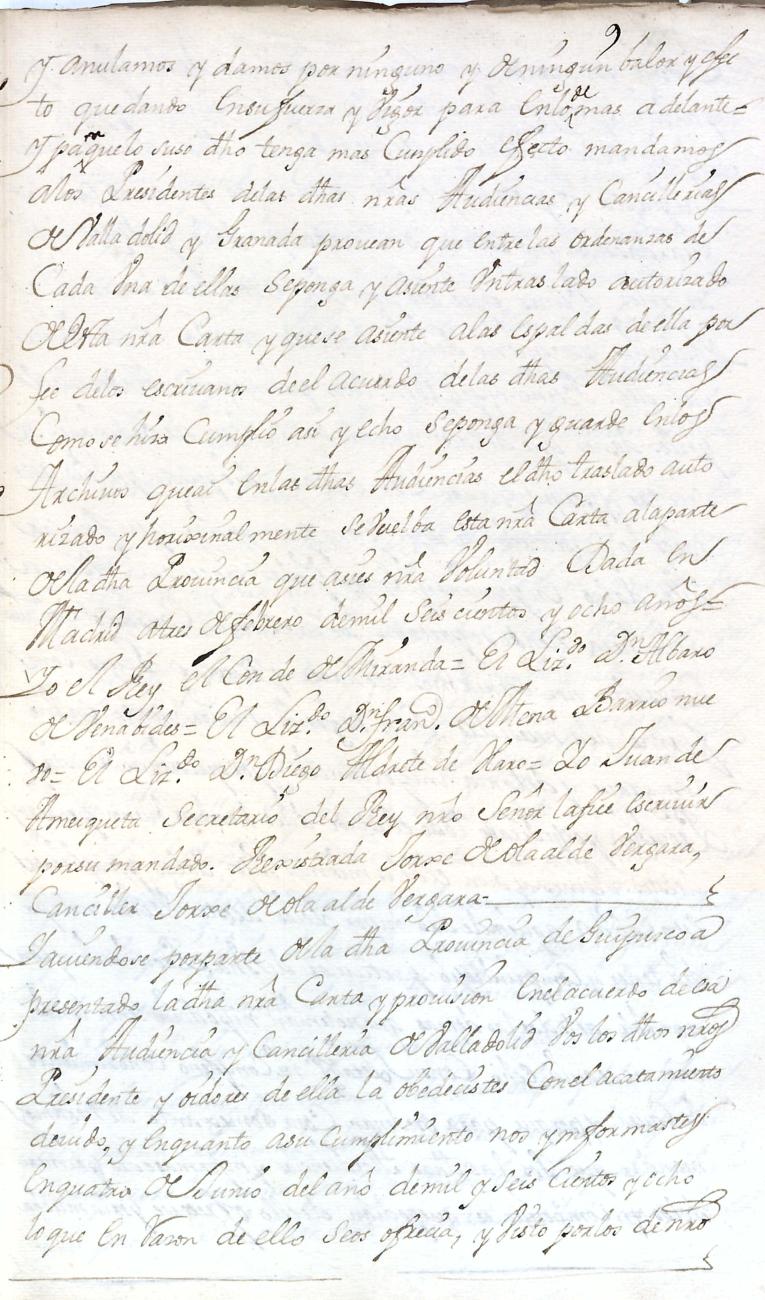 9
Y anulamos y damos por ninguno y de ningun balor y efec
to quedando en su fuerza y Vigor para en lo de mas adelante=
Y paraque lo suso dho tenga mas Cumplido efecto mandamos
alos Presidentes delas dhas nrãs Audiencias y Cancillerias
de Valladolid y Granada prouean que entre las ordenanzas de
Cada Vna de ellas Seponga y asiente Vntraslado autorizado
de Esta nrã Carta y quese asiente alas espaldas de ella por
fee delos escriuanos de el acuerdo delas dhas Audiencias
Como se hizo Cumplio asi y echo Seponga y guarde enlos
Archiuos queai enlas dhas Audiencias el dho traslado auto
rizado y horixinalmente se Vuelba esta nrã Carta alaparte
dela dha Prouincia que asi es nrã Voluntad Dada en
Madrid atres de febrero demil Seis cientos y ocho años=
Yo el Rey el Conde de Miranda= El Liz.do D.n Albaro
de Venabides= El Liz.do D.n Fran.co de Mena Barrionue
bo= El Liz.do D.n Diego Aldrete de Haro= Yo Juan de
Amezqueta Secretario del Rey nrõ Señor lafice escriuir
porsu mandado. Rexistrada Jorxe de Olaalde Vergara,
Canciller Jorxe de Olaalde Vergara-
Yauiendose porparte dela dha Prouincia de Guipuscoa
presentado la dha nrã Carta y prouision enel acuerdo de esa
nrã Audiencia y Cancilleria de Valladolid Vos los dhos nrõs
Presidente y oidores de ella la obedecistes Con el acatamiento
deuido, y enquanto asu Cumplimiento nos ynformastes
enquatro de Junio del año demil y Seis Cientos y ocho
lo que en razon de ello Seos ofrecia, y Visto por los de nrõ